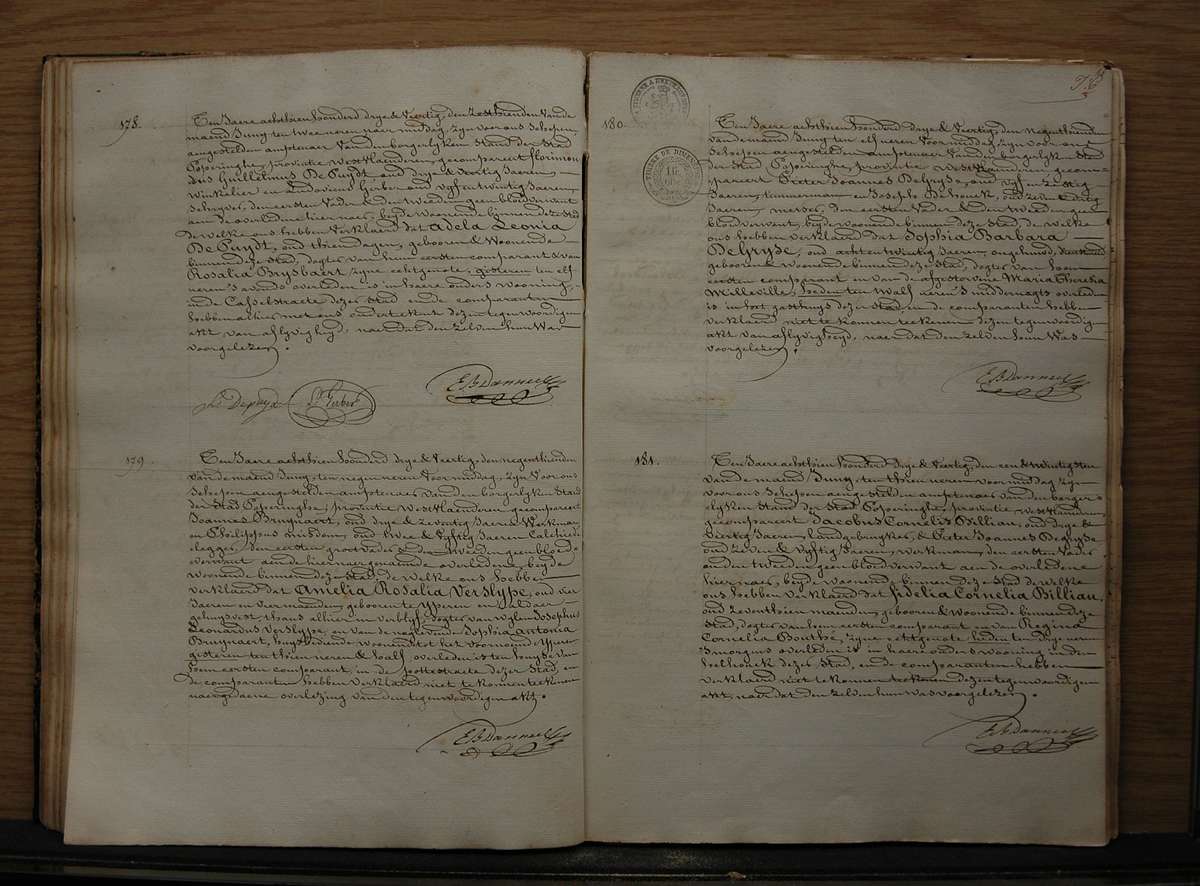 178.
Ten Jaere achthien honderd drye & Veertig, den zesthienden Van de
maend Juny ten twee uren naer middag, zyn voor ons Schepen,
aengestelden amptenaer Van den borgerlyken Stand der Stad
Poperinghe, provintie Westvlaenderen, gecompareert florimon
dus Guillielmus De Puydt, oud drye & Veertig Jaeren,
Winkelier en Ludovicus Herber oud vyf en twintig Jaeren,
Schryver, den eersten Vader & den Tweeden geen bloedverwant
aen de overledene hiernaer, beyde woonende binnen deze Stad
de welke ons hebben Verklaerd dat Adela Leonia
De Puydt, oud thien dagen, gebooren & Woonende
binnen deze Stad, dogter van hunne eersten comparant & van
Rosalia Brysbaert zyne echtgenote, gisteren ten elf
uren 's avonds overleden is in haere ouders wooning,
in de Casselstraete dezer Stad en de comparanten
hebben actie met ons onderteekent dezen tegenwoordigen
akt van aflyvigheyd, naer dat den zelven hun Was
voorgelezen.
179.
Ten Jaere achthien honderd drye & Veertig, den negenthienden
van de maend Juny, ten negen uren Voormiddag, zyn Voor ons
Schepen aengestelden amptenaer van den borgerlyken Stand
der Stad Poperinghe, provintie Westvlaenderen gecompareert
Joannes Bruynaert, oud drye & zeventig Jaeren Werkman
en Philippus misdom, oud twee & Vyftig Jaeren Calchiede
legger, den eersten grootvader & den tweeden geen bloed
verwant aen de hiernaergenaemde overledene, beyde
woonende binnen deze Stad, de welke ons hebben
verklaerd dat Amelia Rosalia Verslype, oud vier
Jaeren en vier maenden, gebooren te Yperen en aldaer
gehuysvest, thans alhier in verblyf, dogter van wylen Josephus
Leonardus Verslype, en van de nagelevende Sophia Antonia
Bruynaert, huyshoudende woonende tot het voornoemd Yperen
gisteren ten thien uren & half, overleden is ten huyze van
hom eersten comparant, in de pottestraete dezer Stad, en
de comparanten hebben verklaerd niet te konnen teekenen
naer gedaene overlezing van den tegenwoordigen akt.
180.
Ten Jaere achthien honderd drye & Veertig, den negenthienden
van de maend Juny ten elf uren Voormiddag, zyn voor ons
Schepen aengestelden amptenaer Van den borgerlyk Stand
der Stad Poperinghe, provintie Westvlaenderen gecom-
pareert Pieter Joannes Degryse, oud vyf en zestig
Jaeren, timmerman en Josephs Dehouck, oud zeven & dertig
Jaeren, metser, den eersten Vader & den tweeden geen
bloedverwant, beyde woonende binnen deze Stad, de welke
ons hebben verklaerd dat Sophia Barbara
Degryse, oud acht en twintig Jaeren, ongehuwd,
gebooren & woonende binnen deze Stad, dogter van hom
eersten comparant en van de afgestorvene Maria Theresia
Milleville, heden ten twalf uren 's middernagts overleden
is in het gasthuys dezer Stad, en de comparanten hebben
verklaerd niet te konnen teekenen dezen tegenwoordigen
akt van aflyvigheyd, naer dat den zelven hun Was
voorgelezen.
181.
Ten Jaere achthien honderd drye & Veertig, den een & twintigsten
van de maend Juny, ten thien uren voormiddag zyn
voor ons Schepen aengestelden amptenaer van den borger-
lyken Stand der Stad Poperinghe provintie Westvlaenderen,
gecompareert Jacobus Cornelis Billiau, oud drye &
Veertig Jaeren, landgebruyker, & Pieter Joannes Degryse
oud zeven & Vyftig Jaeren, werkman, den eersten Vader
en den tweeden geen bloedverwant aen de overledene
hiernaer, beyde woonende binnen deze Stad de welke
ons hebben verklaerd dat Fidelia Cornelia Billiau,
oud zeventhien maenden, gebooren & woonende binnen deze
Stad, dogter van hom eersten comparant en van Regina
Cornelia Bouthé, zyne echtgenote heden ten drye uren
's morgens overleden is in haere ouders wooning in den
helhoek dezer Stad, en de comparanten hebben
verklaerd niet te konnen teekenen dezen tegenwoordigen
akt, naer dat den zelven hun was voorgelezen.